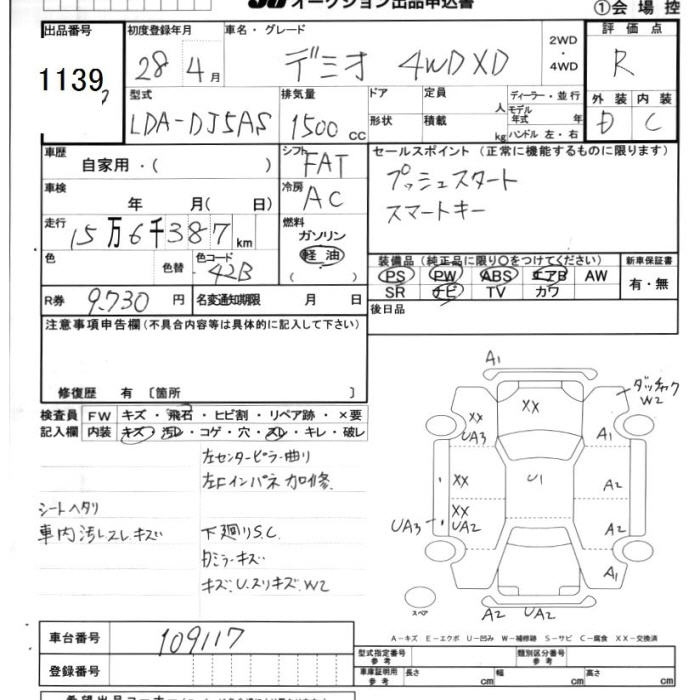 オークション出品申込書
①会場控
出品番号
1139
初度登録年月
28年4月
車名・グレード
デミオ 4WD XD
2WD・4WD
評価点
R
型式
LDA-DJ5AS
排気量
1500cc
ドア
形状
定員 人
積載 kg
ディーラー・並行
モデル年式 年
ハンドル 左・右
外装 内装
D C
車歴
自家用・( )
シフト
FAT
セールスポイント (正常に機能するものに限ります)
プッシュスタート
スマートキー
車検
年 月( 日)
冷房
AC
走行
15万6千387km
燃料
ガソリン
軽油
( )
色
色替
色コード
42B
装備品 (純正品に限り○をつけてください)
新車保証書
PS PW ABS エアB AW
有・無
SR ナビ TV カワ
R券 9,730円
名変通知期限 月 日
後日品
注意事項申告欄 (不具合内容等は具体的に記入して下さい)
修復歴 有 〔箇所 〕
検査員記入欄
FW キズ・飛石・ヒビ割・リペア跡・×要
内装 キズ・汚レ・コゲ・穴・スレ・キレ・破レ
左センターピラー曲り
左Fインパネ加修
シートヘタリ
車内汚レスレキズ
下廻りS.C
ミラーキズ
キズ.U.スリキズ.W2
A1
XX
UA3
XX
A1
W2
XX
U1
A2
XX
UA2
UA3
A2
A1
スペア
A2
UA2
A-キズ E-エクボ U-凹み W-補修跡 S-サビ C-腐食 XX-交換済
車台番号
109117
登録番号
型式指定番号
参考
類別区分番号
参考
車庫証明用
参考
長さ cm
幅 cm
高さ cm